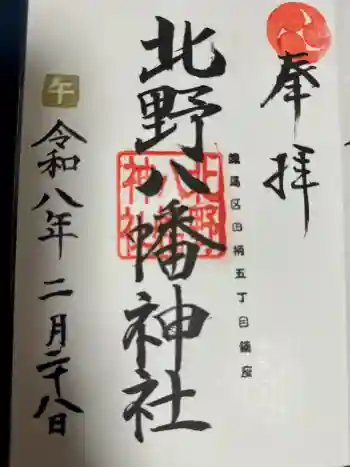 奉拝
練馬区田柄五丁目鎮座
北野八幡神社
北野
八幡
神社
午
令和八年 二月二十八日